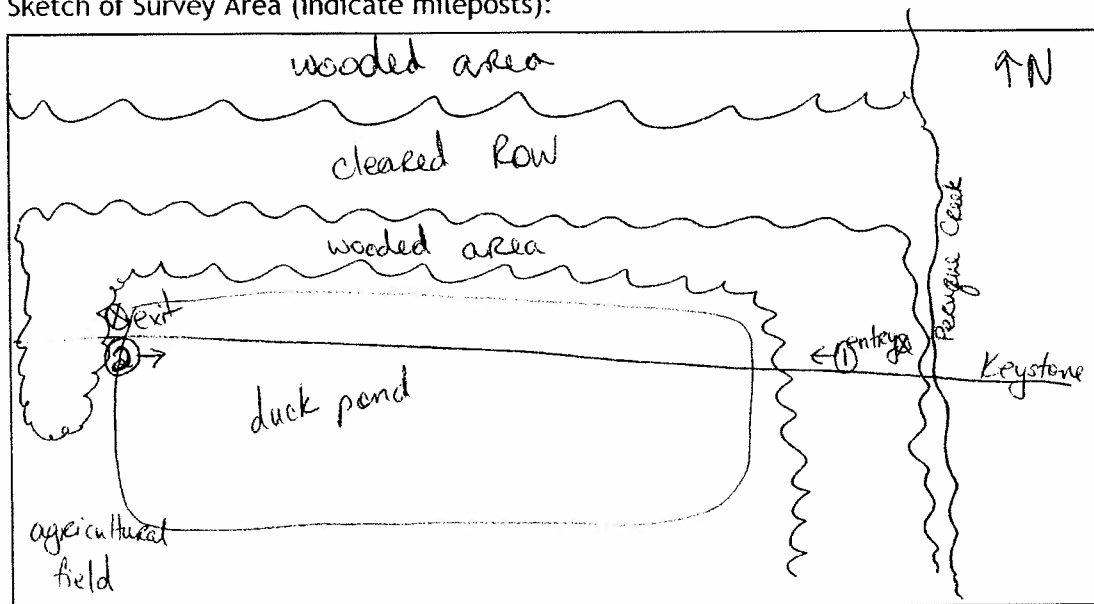 Sketch of Survey Area (indicate mileposts):
wooded area
↑N
cleared ROW
wooded area
Peruque Creek
exit
entry
← ①
② →
Keystone
duck pond
agricultural
field